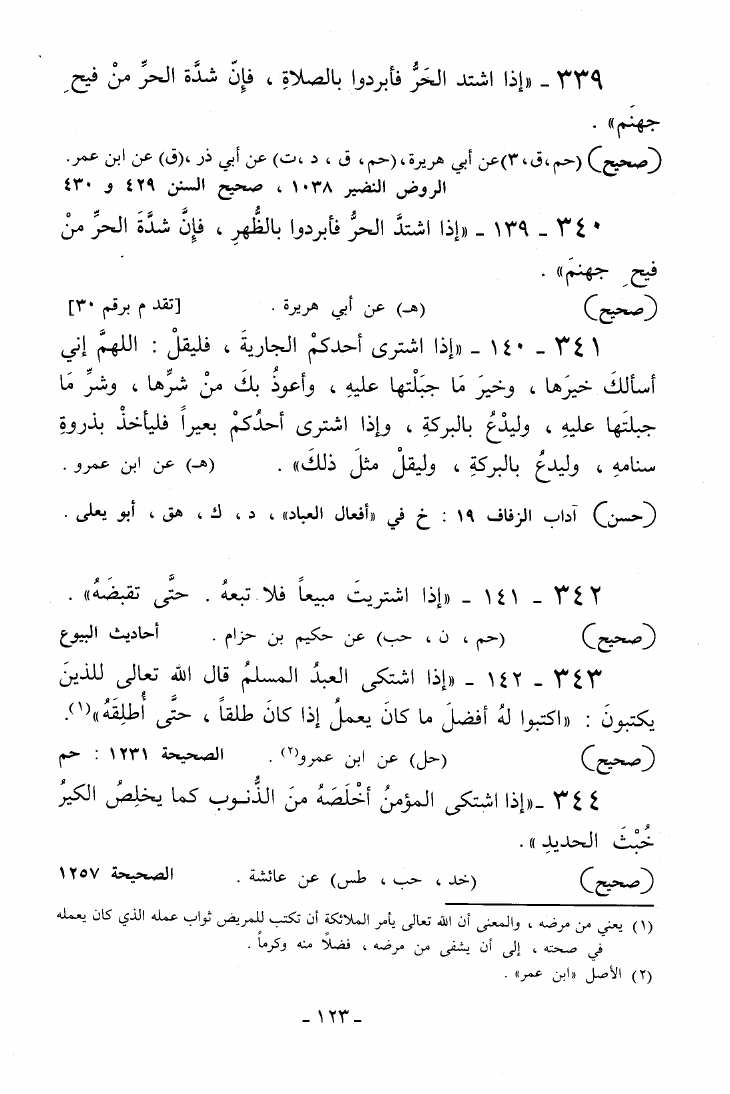 ٣٣٩ - «إذا اشتد الحَرُّ فأبردوا بالصلاةِ ، فإِنّ شدَّة الحرِّ منْ فيحِ
جهنَم» .
(صحيح) (حم،ق،٣)عن أبي هريرة،(حم، ق ، د ،ت) عن أبي ذر ،(ق) عن ابن عمر.
الروض النضير ١٠٣٨ ، صحيح السنن ٤٢٩ و ٤٣٠
٣٤٠ - ١٣٩ - «إذا اشتدَّ الحرُّ فأبردوا بالظُّهرِ ، فإنَّ شدَّةَ الحرِّ منْ
فيحِ جهنمَ» .
(صحيح) (هـ) عن أبي هريرة . [تقدم برقم ٣٠]
٣٤١ - ١٤٠ - «إذا اشترى أحدكمْ الجاريةَ ، فليقلْ : اللهمَّ إني
أسألكَ خيرَها ، وخيرَ مَا جبَلْتها عليهِ ، وأعوذُ بكَ منْ شرِّها ، وشرِّ مَا
جبلتَها عليهِ ، وليدْعُ بالبركةِ ، وإذا اشترى أحدُكمْ بعيراً فليأخذْ بذروةِ
سنامهِ ، وليدعُ بالبركةِ ، وليقلْ مثلَ ذلكَ» . (هـ) عن ابن عمرو .
(حسن) آداب الزفاف ١٩ : خ في «أفعال العباد» ، د ، ك ، هق ، أبو يعلى .
٣٤٢ - ١٤١ - «إذا اشتريتَ مبيعاً فلا تبعهُ . حتَّى تقبضَهُ» .
(صحيح) (حم ، ن ، حب) عن حكيم بن حزام . أحاديث البيوع
٣٤٣ - ١٤٢ - «إذا اشتكى العبدُ المسلمُ قال الله تعالى للذينَ
يكتبونَ : «اكتبوا لهُ أفضلَ ما كانَ يعملُ إذا كانَ طلقاً ، حتَّى أُطلِقَهُ»(١).
(صحيح) (حل) عن ابن عمرو(٢) . الصحيحة ١٢٣١ : حم
٣٤٤ -«إذا اشتكى المؤمنُ أخْلَصَهُ منَ الذُّنوبِ كما يخلِصُ الكيرُ
خُبْثَ الحديدِ» .
(صحيح) (خد ، حب ، طس) عن عائشة . الصحيحة ١٢٥٧
(١) يعني من مرضه ، والمعنى أن الله تعالى يأمر الملائكة أن تكتب للمريض ثواب عمله الذي كان يعمله
في صحته ، إلى أن يشفى من مرضه ، فضلًا منه وكرماً .
(٢) الأصل «ابن عمر» .
- ١٢٣ -